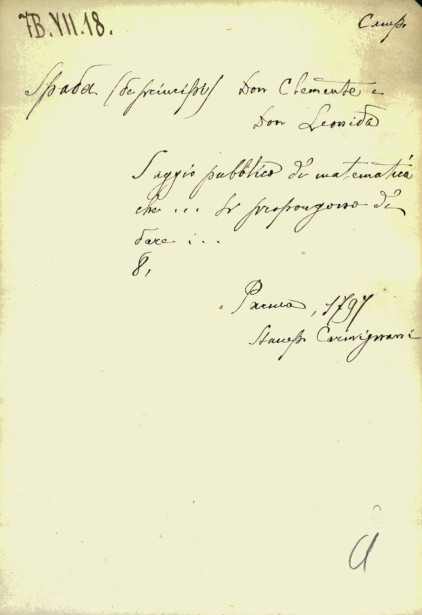 7B.VII.18.
Camp.
Spada (de principi) Don Clemente e
Don Leonida
Saggio pubblico di matematica
che ... si propongono di
dare ...
8,
Parma, 1797
Stamp. Carmignani
a